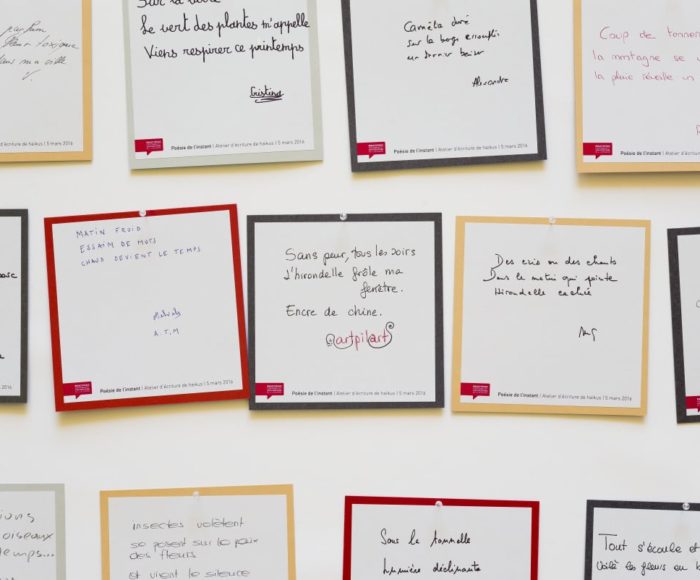 toujours
dans ma ville
Poésie de l'instant | Atelier d'écriture de haïkus | 5 mars 2016
Sur la
Le vert des plantes m'appelle
Viens respirer ce printemps
Cristina
Poésie de l'instant | Atelier d'écriture de haïkus | 5 mars 2016
Camélia doré
sur la berge
un dernier baiser
Alexandre
Poésie de l'instant | Atelier d'écriture de haïkus | 5 mars 2016
Coup de tonner
la montagne se
la pluie réveille un
Poésie de l'instant | Atelier d'écriture de haïkus | 5 m
2016
MATIN FROID
ESSAIM DE MOTS
CHAUD DEVIENT LE TEMPS
A.T.M
Poésie de l'instant | Atelier d'écriture de haïkus | 5 mars 2016
Sans peur, tous les soirs
L'hirondelle frôle ma
fenêtre.
Encre de chine.
@artpilart@
Poésie de l'instant | Atelier d'écriture de haïkus | 5 mars 2016
Des cris ou des chants
Dans le matin qui pointe
Hirondelle cachée
Poésie de l'instant | Atelier d'écriture de haïkus | 5 mars 2016
ions
oiseaux
temps...
insectes volètent
se posent sur le
des fleurs
et vivent le silence
Sous la tonnelle
lumière déclinante
Tout s'écoule et
Voilà les fleurs au